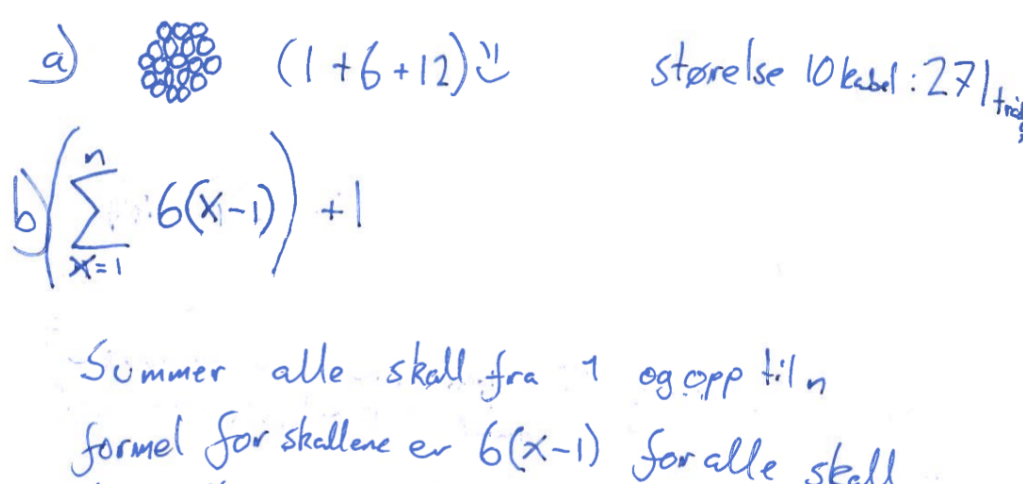 a) (1+6+12) størelse 10 kabel: 271
b) (∑ⁿₓ₌₁ 6(x-1)) +1
Summer alle skall fra 1 og opp til n
formel for skallene er 6(x-1) for alle skall